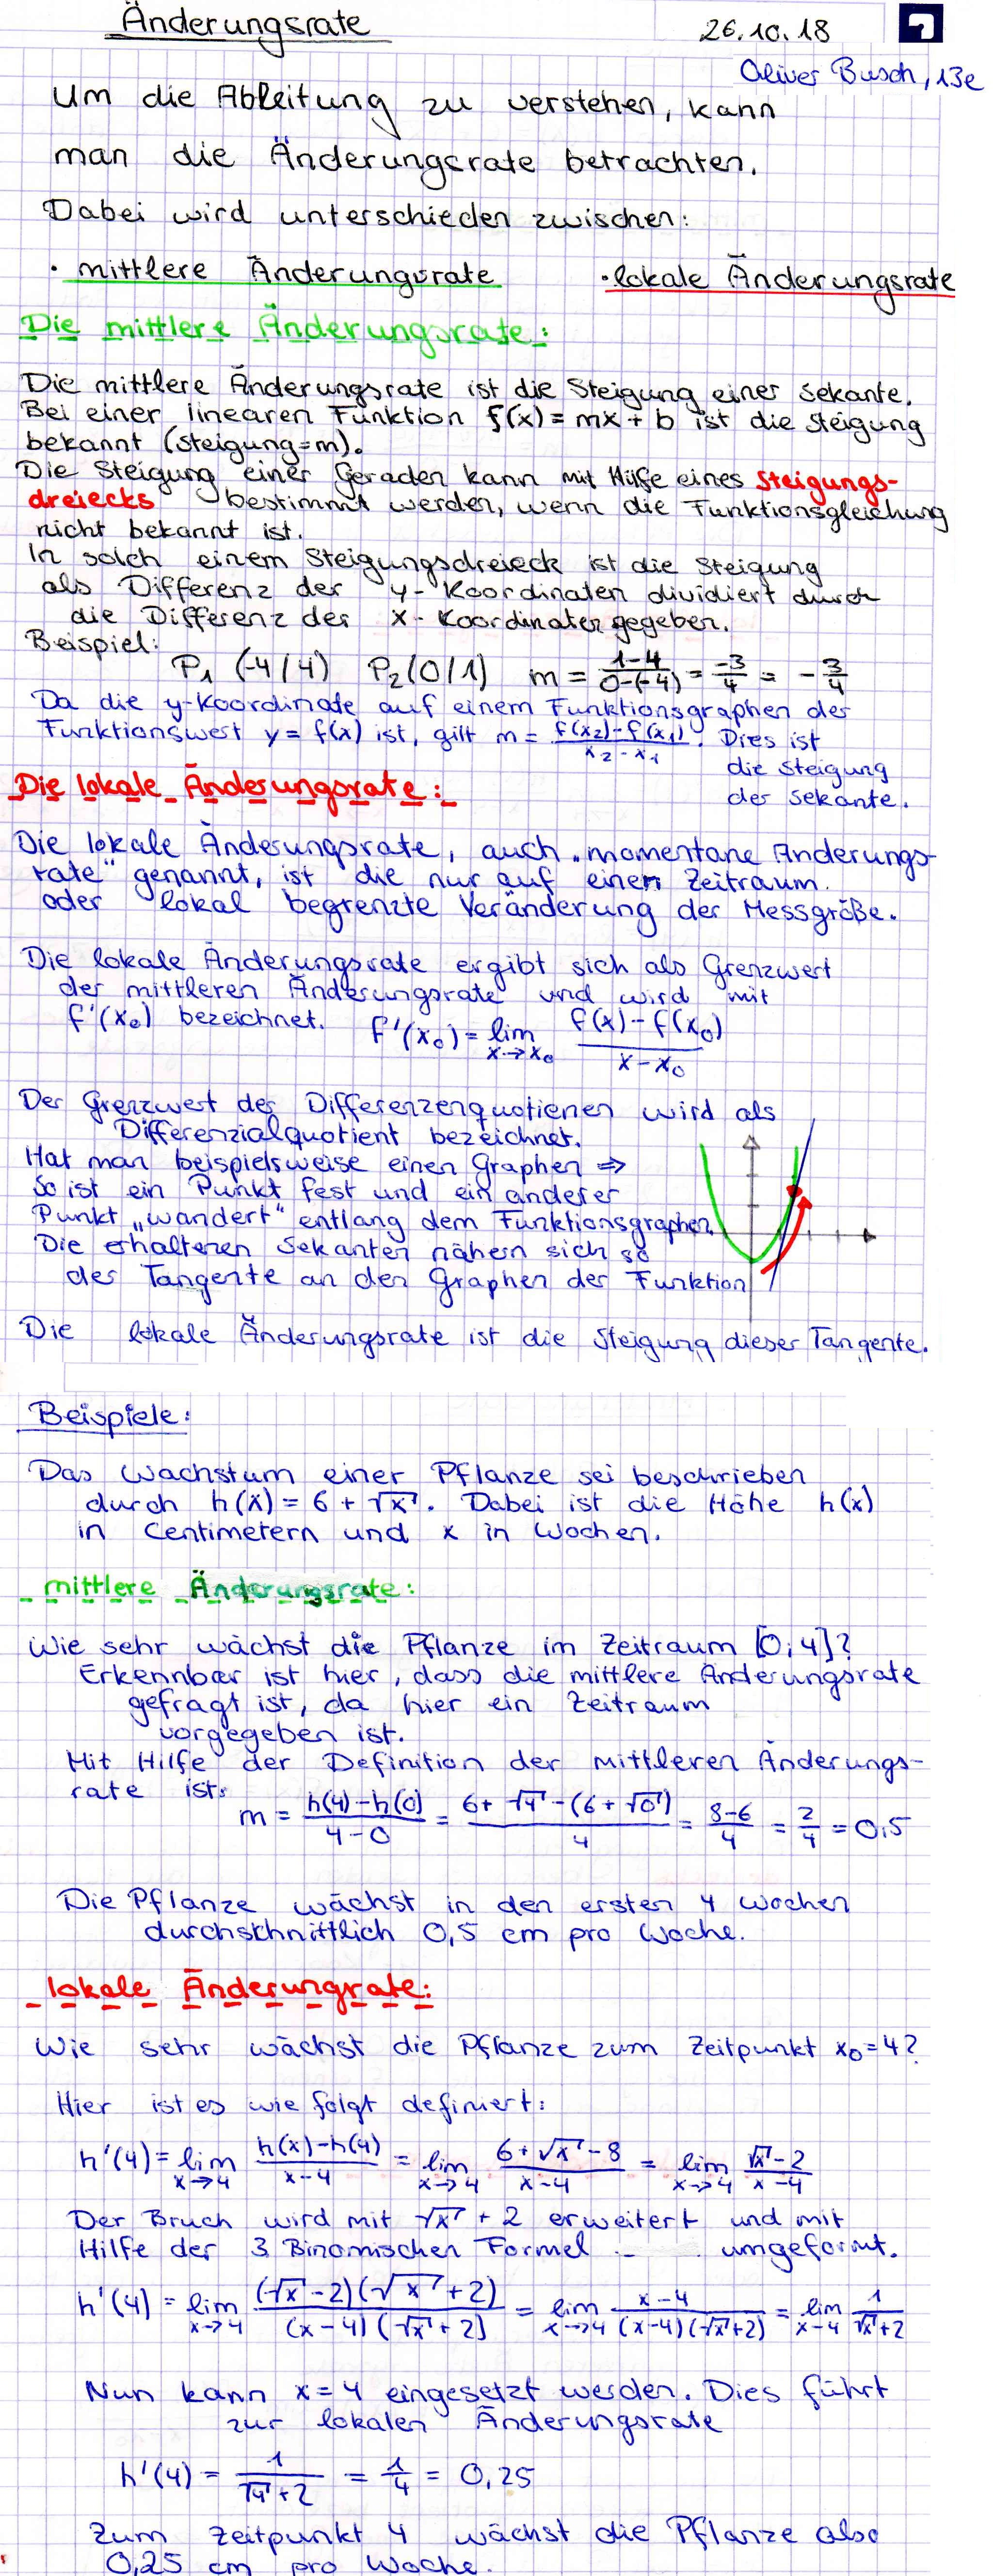 Änderungsrate 26.10.18
Oliver Busch, 13e
Um die Ableitung zu verstehen, kann
man die Änderungsrate betrachten.
Dabei wird unterschieden zwischen:
· mittlere Änderungsrate · lokale Änderungsrate
Die mittlere Änderungsrate:
Die mittlere Änderungsrate ist die Steigung einer Sekante.
Bei einer linearen Funktion f(x) = mx + b ist die Steigung
bekannt (Steigung=m).
Die Steigung einer Geraden kann mit Hilfe eines Steigungs-
dreiecks bestimmt werden, wenn die Funktionsgleichung
nicht bekannt ist.
In solch einem Steigungsdreieck ist die Steigung
als Differenz der y-Koordinaten dividiert durch
die Differenz der x-Koordinaten gegeben.
Beispiel:
P₁ (-4/4) P₂ (0/1) m = (1-4)/(0-(-4)) = -3/4 = - 3/4
Da die y-Koordinate auf einem Funktionsgraphen der
Funktionswert y = f(x) ist, gilt m = (f(x₂)-f(x₁))/(x₂-x₁). Dies ist
die Steigung
der Sekante.
Die lokale Änderungsrate:
Die lokale Änderungsrate, auch „momentane Änderungs-
rate" genannt, ist die nur auf einen Zeitraum
oder lokal begrenzte Veränderung der Messgröße.
Die lokale Änderungsrate ergibt sich als Grenzwert
der mittleren Änderungsrate und wird mit
f'(x₀) bezeichnet. f'(x₀) = lim x→x₀ (f(x)-f(x₀))/(x-x₀)
Der Grenzwert des Differenzenquotienen wird als
Differenzialquotient bezeichnet.
Hat man beispielsweise einen Graphen ⇒
So ist ein Punkt fest und ein anderer
Punkt „wandert" entlang dem Funktionsgraphen.
Die erhaltenen Sekanten nähern sich so
der Tangente an den Graphen der Funktion
Die lokale Änderungsrate ist die Steigung dieser Tangente.
Beispiele:
Das Wachstum einer Pflanze sei beschrieben
durch h(x) = 6 + √x. Dabei ist die Höhe h(x)
in Centimetern und x in Wochen.
mittlere Änderungsrate:
Wie sehr wächst die Pflanze im Zeitraum [0;4]?
Erkennbar ist hier, dass die mittlere Änderungsrate
gefragt ist, da hier ein Zeitraum
vorgegeben ist.
Mit Hilfe der Definition der mittleren Änderungs-
rate ist:
m = (h(4)-h(0))/(4-0) = (6+√4-(6+√0))/4 = (8-6)/4 = 2/4 = 0,5
Die Pflanze wächst in den ersten 4 Wochen
durchschnittlich 0,5 cm pro Woche.
lokale Änderungrate:
Wie sehr wächst die Pflanze zum Zeitpunkt x₀=4?
Hier ist es wie folgt definiert:
h'(4) = lim x→4 (h(x)-h(4))/(x-4) = lim x→4 (6+√x-8)/(x-4) = lim x→4 (√x-2)/(x-4)
Der Bruch wird mit √x + 2 erweitert und mit
Hilfe der 3 Binomischen Formel umgeformt.
h'(4) = lim x→4 ((√x-2)(√x+2))/((x-4)(√x+2)) = lim x→4 (x-4)/((x-4)(√x+2)) = lim x→4 1/(√x+2)
Nun kann x=4 eingesetzt werden. Dies führt
zur lokalen Änderungsrate
h'(4) = 1/(√4+2) = 1/4 = 0,25
Zum Zeitpunkt 4 wächst die Pflanze also
0,25 cm pro Woche.